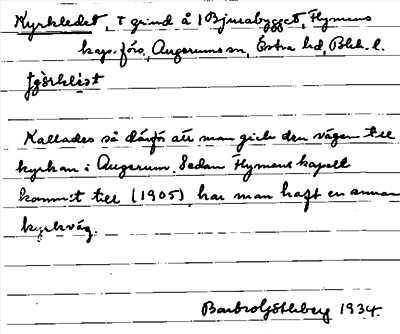 Kyrkledet, † grind å 1 Bjursabygget, Flymens
kap. förs., Augerums sn, Östra hd, Blek. l.
Kallades så därför att man gick den vägen till
kyrkan i Augerum. Sedan Flymens kapell
kommit till (1905), har man haft en annan
kyrkväg.
Barbro Göthberg 1934.